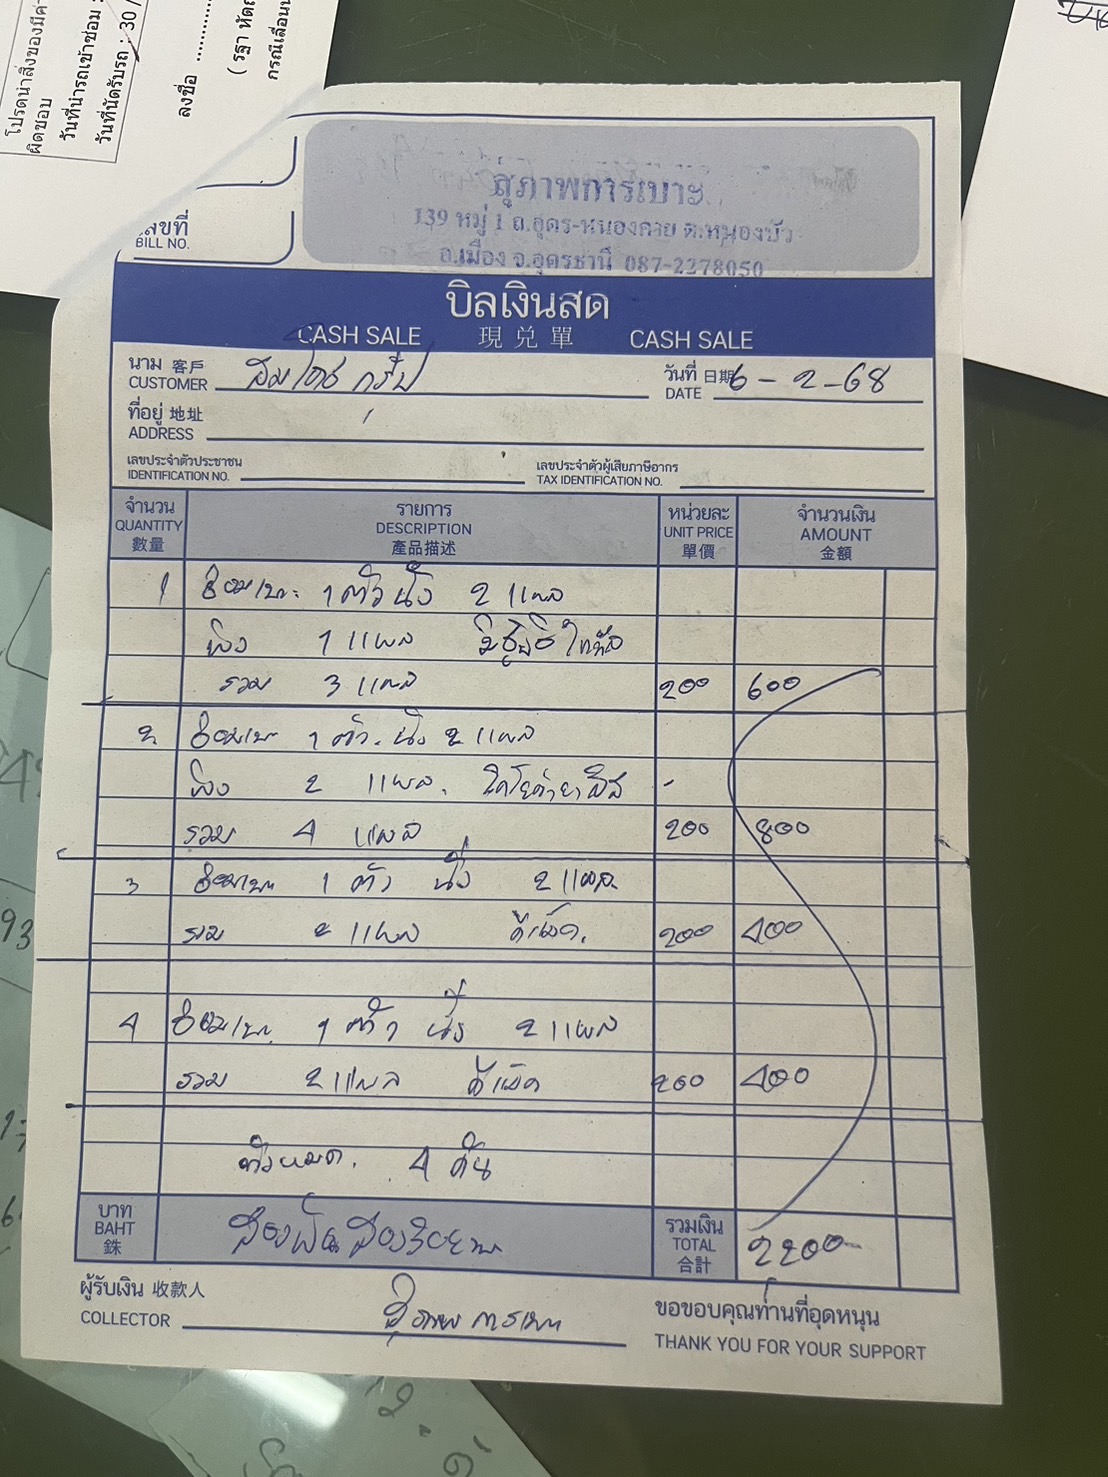 โปรดนำสิ่งของมีค่า
ผิดชอบ
วันที่นำรถเข้าซ่อม :
วันที่นัดรับรถ : 30 /
ลงชื่อ
( รฐา หัตถ
กรณีเลื่อนน
เลขที่
BILL NO.
สุภาพการเบาะ
139 หมู่ 1 ถ.อุดร-หนองคาย ต.หนองบัว
อ.เมือง จ.อุดรธานี 087-2278050
บิลเงินสด
CASH SALE 現兑單 CASH SALE
นาม 客戶
CUSTOMER กรุ๊ป
วันที่ 日期 6 - 2 - 68
DATE
ที่อยู่ 地址
ADDRESS
เลขประจำตัวประชาชน
IDENTIFICATION NO.
เลขประจำตัวผู้เสียภาษีอากร
TAX IDENTIFICATION NO.
จำนวน รายการ หน่วยละ จำนวนเงิน
QUANTITY DESCRIPTION UNIT PRICE AMOUNT
數量 產品描述 單價 金額
1 ซ่อมเบาะ 1 ตัว นั่ง 2 แผล
พิง 1 แผล
รวม 3 แผล 200 600
2 ซ่อมเบาะ 1 ตัว นั่ง 2 แผล
พิง 2 แผล
รวม 4 แผล 200 800
3 ซ่อมเบาะ 1 ตัว นั่ง 2 แผล
รวม 2 แผล ดีแม็ค 200 400
4 ซ่อมเบาะ 1 ตัว นั่ง 2 แผล
รวม 2 แผล ดีแม็ค 200 400
ทั้งหมด 4 คัน
บาท
BAHT
銖
สองพันสองร้อยบาท
รวมเงิน
TOTAL
合計
2200-
ผู้รับเงิน 收款人
COLLECTOR สุภาพการเบาะ
ขอขอบคุณท่านที่อุดหนุน
THANK YOU FOR YOUR SUPPORT